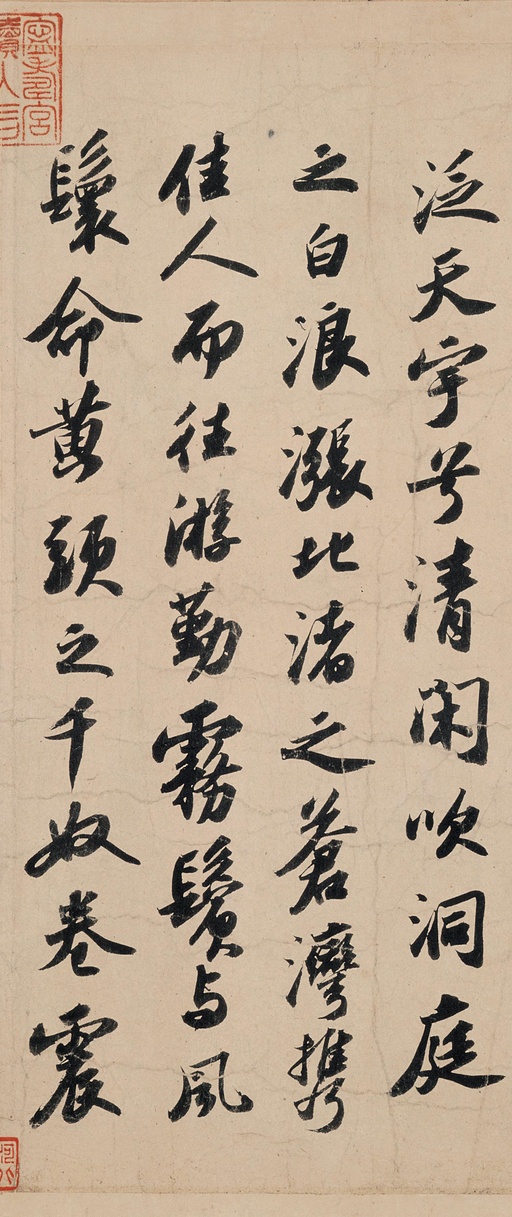 泛天宇兮清闲吹洞庭
之白浪漲北渚之蒼灣携
佳人而往游勤霧鬢与風
鬟命黄頭之千奴卷震